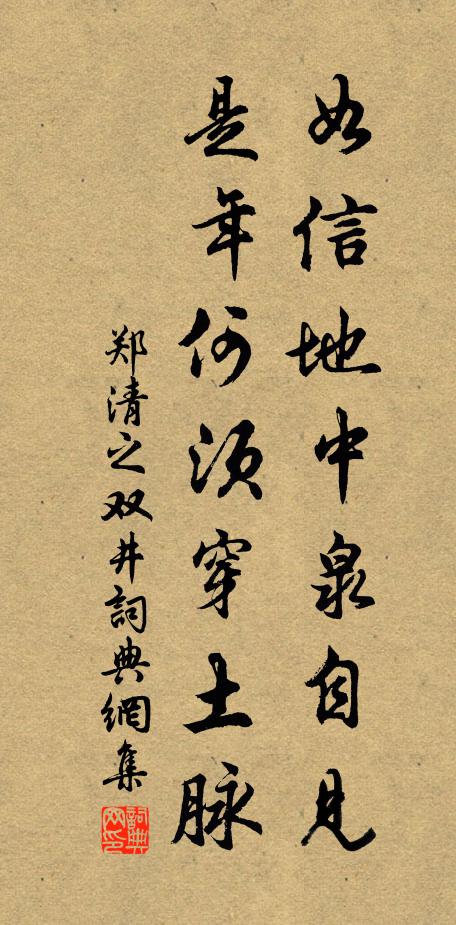 如信地中泉自見
是年何须穿土脉
郑清之双井詞典網集
詞典网印